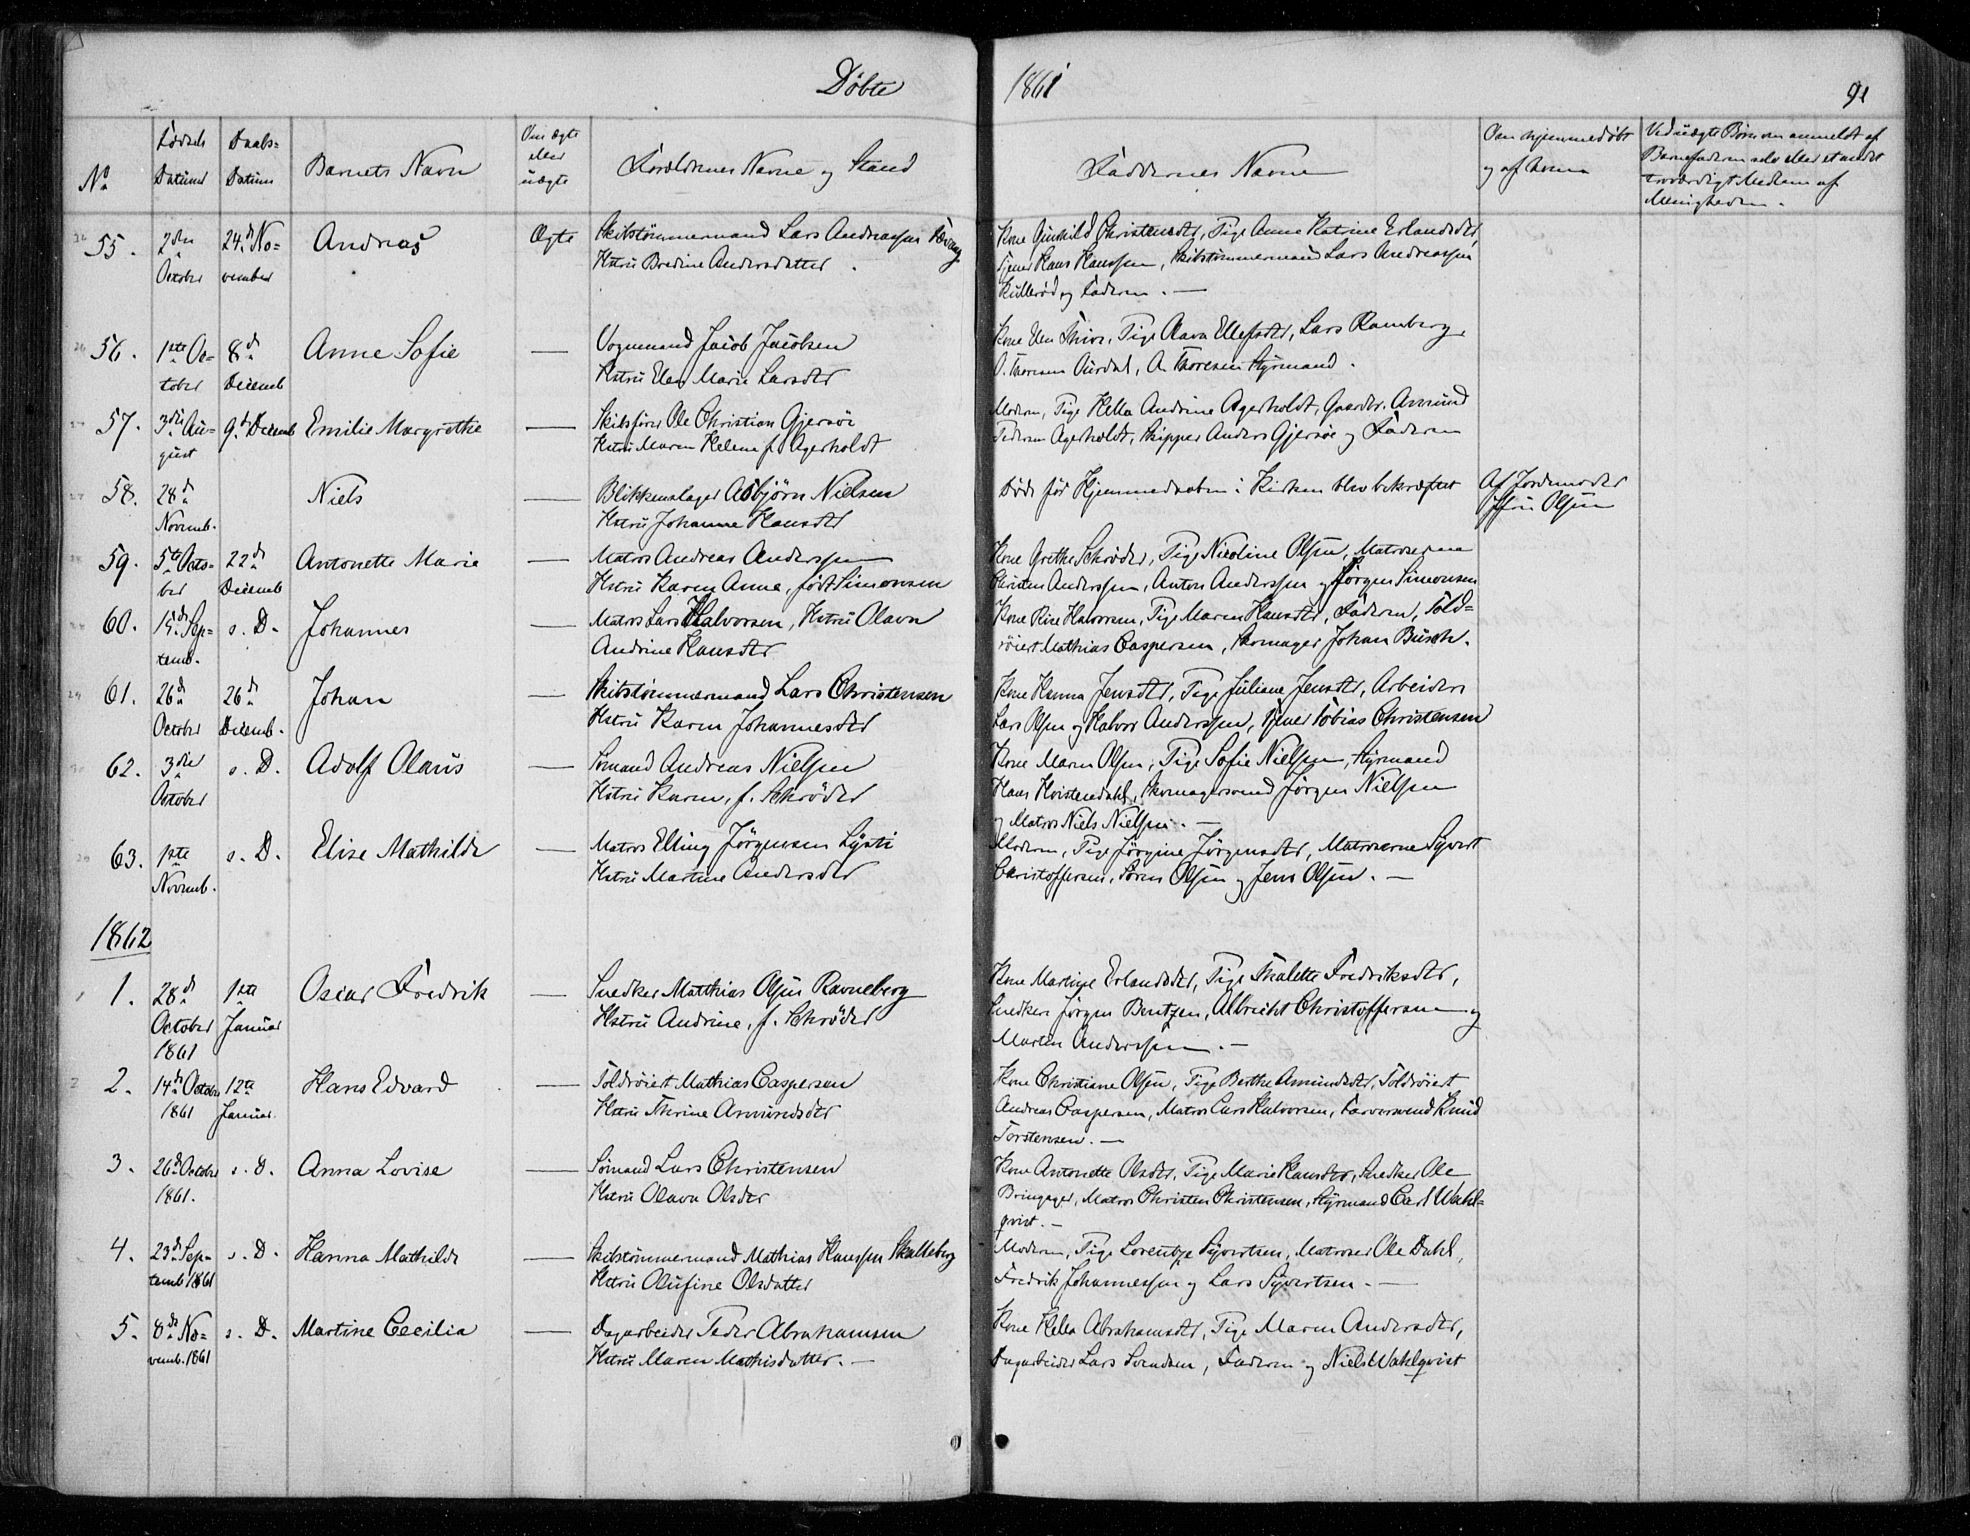 Döbte
1861
91
No
Fødsels Datum
Daabs- Datum
Barnets Navn
Om ægte eller uægte
Forældrenes Navne og Stand
Faddernes Navne
Om hjemmedøbt og af hvem
Ved uægte Børn om anmeldt af Barnefaderen selv eller et andet troværdigt Medlem af Menigheden.
55.
2den October
24d. November
Andreas
Ægte
Skibstømmermand Lars Andreassen
Hstru Bredine Andersdatter.
Kone Gunhild Christensdtr, Tige Anne Katrine Erlandsdtr,
Tjener Hans Hanssen, Skibstømmermand Lars Andreassen
Kullerød og Faderen. —
56.
1ste October
8d Decemb
Anne Sofie
—
Vognmand Jacob Jacobsen
Hstru Elen Marie Larsdtr
Kone Elen Thovs, Tige Olava Ellefsdtr, Lars Ramberg,
O. Thoresen Aurdal, A. Thoresen Styrmand.
57.
3die August
9d Decemb
Emilie Margrethe
—
Skibsfører Ole Christian Gjersøe
Hstru Maren Helene f. Agerholdt
Moderen, Tige Hella Andrine Agerholdt, Gaardbr. Amund
Pedersen Agerholdt, Skipper Anders Gjersøe og Faderen
58.
28d Novemb.
Niels
—
Blikkenslager Asbjørn Nielsen
Hstru Johanne Hansdtr
Døde før Hjemmedaaben i Kirken blev bekræftet
Af Jordemoder
Jfru Olsen
59.
5te October
22d Decemb
Antonette Marie
—
Matros Andreas Anderssen
Hstru Karen Anne, født Simonsen
Kone Grethe Schrøder, Tige Nicoline Olsen, Matroserne
Christen Anderssen, Anton Anderssen og Jørgen Simonsen
60.
15d Septemb.
s. D.
Johannes
—
Matros Lars Halvorsen, Hstru Olava
Andrine Hansdtr
Kone Rise Halvorsen, Tige Maren Hansdtr, Faderen, Told-
røiert Mathias Caspersen, Skomager Johan Busch.
61.
26d October
26d Decemb.
Johan
—
Skibstømmermand Lars Christensen
Hstru Karen Johannesdtr
Kone Hanna Jensdtr, Tige Juliane Jensdtr, Arbeider
Lars Olsen og Halvor Anderssen, Tjener Tobias Christensen
62.
3die October
s. D.
Adolf Olaus
—
Sømand Andreas Nielsen
Hstru Karen, f. Schrøder
Kone Maren Olsen, Tige Sofie Nielsen, Styrmand
Hans Hvistendahl, Skomagersvend Jørgen Nielsen
og Matros Niels Nielsen. —
63.
1ste Novemb.
s. D.
Elise Mathilde
—
Matros Elling Jørgensen Lysti
Hstru Martine Andersdtr
Moderen, Tige Jørgine Jørgensdtr, Matroserne Syvert
Christoffersen, Søren Olsen og Jens Olsen. —
1862
1.
28d October 1861
1ste Januar
Oscar Fredrik
—
Snedker Matthias Olsen Ravneberg
Hstru Andrine, f. Schrøder
Kone Martine Erlandsdtr, Tige Thalette Fredriksdtr,
Snedkere Jørgen Bentzen, Albrecht Christoffersen og
Morten Anderssen. —
2.
14d October 1861
12te Januar.
Hans Edvard
—
Toldrøiert Mathias Caspersen
Hstru Thrine Amundsdtr
Kone Christiane Olsen, Tige Berthe Amundsdtr, Toldrøiert
Andreas Caspersen, Matros Lars Halvorsen, Farversvend Knud
Torstensen. —
3.
26d October 1861.
s. D.
Anna Lovise
—
Sømand Lars Christensen
Hstru Olava Olsdtr
Kone Antonette Olsdtr, Tige Marie Hansdtr, Snedker Ole
Bringager, Matros Christen Christensen, Styrmand Carl Wahl-
qvist. —
4.
23d Septemb 1861
s. D.
Hanna Mathilde
—
Skibstømmermand Mathias Hanssen Skalleberg
Hstru Olufine Olsdatter
Moderen, Tige Lorentze Syvertsen, Matroser Ole Dahl,
Fredrik Johannessen og Lars Syvertsen. —
5.
8de Novemb. 1861
s. D.
Martine Cecilia
—
Dagarbeider Peder Abrahamsen
Hstru Maren Mathisdatter. —
Kone Hella Abrahamsdtr, Tige Maren Andersdtr,
Dagarbeider Lars Svendsen, Faderen og Niels Wahlqvist